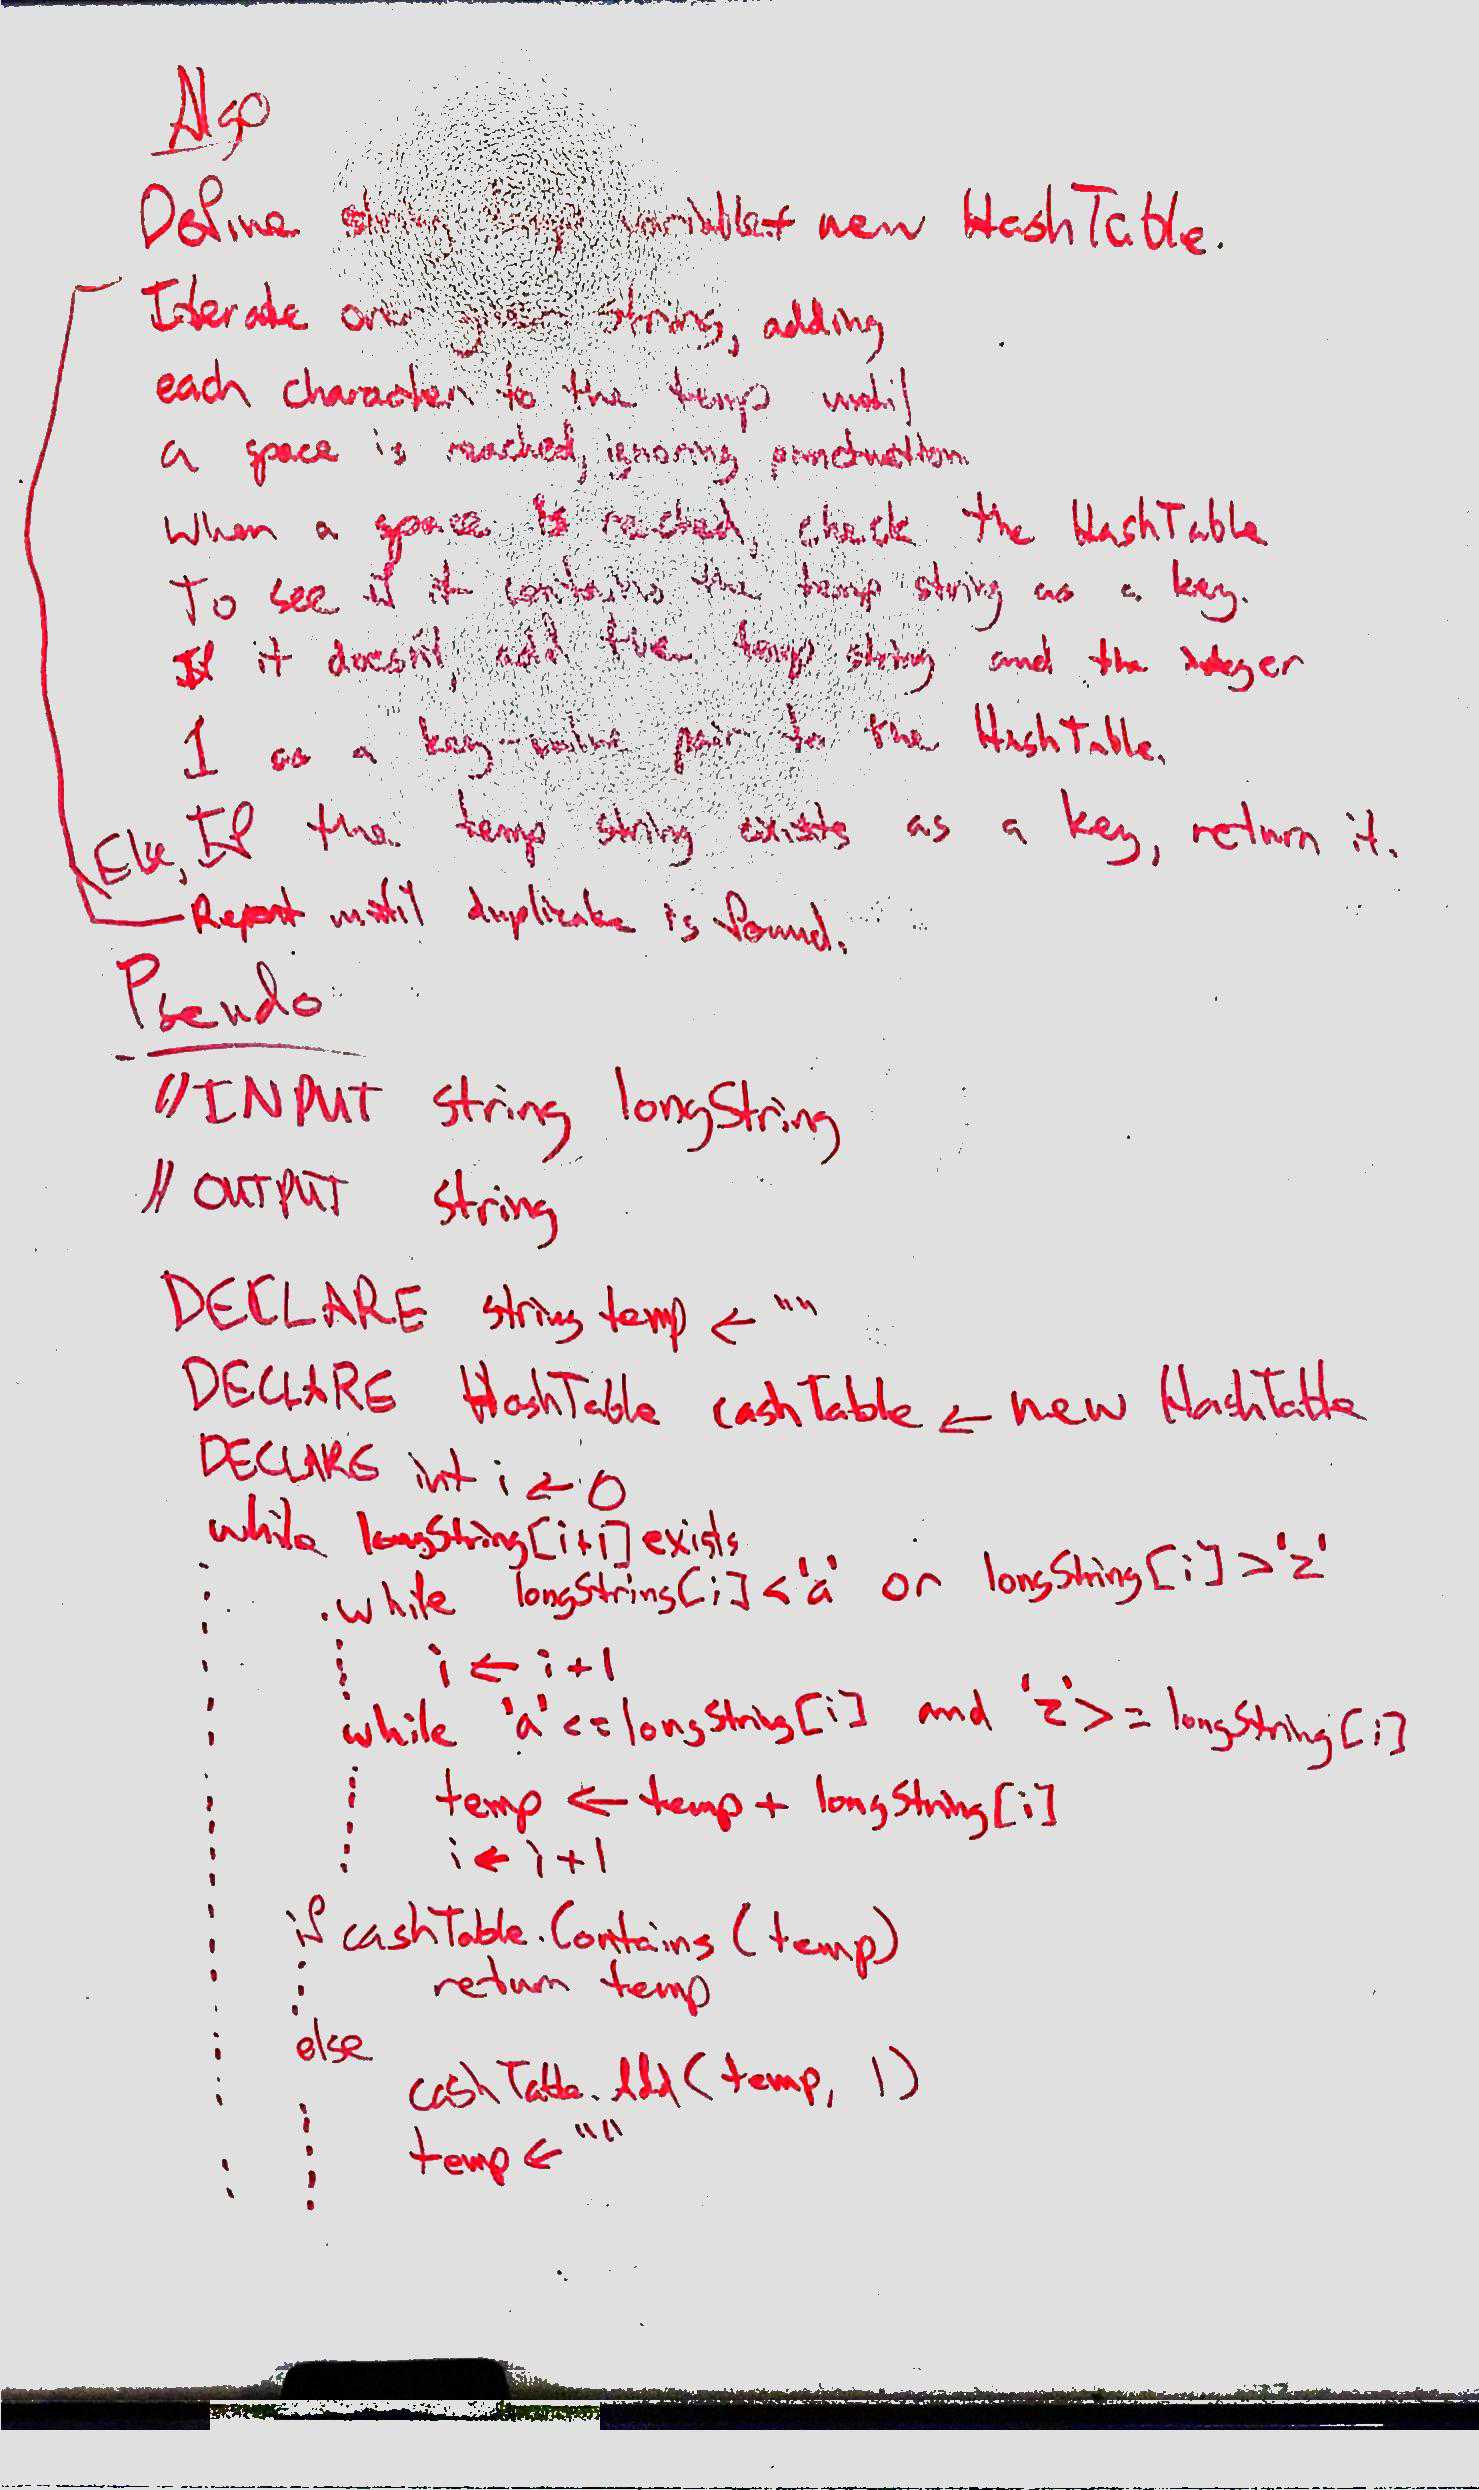 Algo
Define string temp variable + new HashTable.
Iterate over given string, adding
each character to the temp until
a space is reached, ignoring punctuation.
When a space is reached, check the HashTable
To see if it contains the temp string as a key.
If it doesn't, add the temp string and the integer
1 as a key-value pair to the HashTable.
Else, If the temp string exists as a key, return it.
Repeat until duplicate is found.
Pseudo
//INPUT string longString
// OUTPUT string
DECLARE string temp ← ""
DECLARE HashTable cashTable ← new HashTable
DECLARE int i ← 0
while longString[i+1] exists
while longString[i] < 'a' or longString[i] > 'z'
i ← i+1
while 'a' <= longString[i] and 'z' >= longString[i]
temp ← temp + longString[i]
i ← i+1
if cashTable.Contains(temp)
return temp
else
cashTable.Add(temp, 1)
temp ← ""